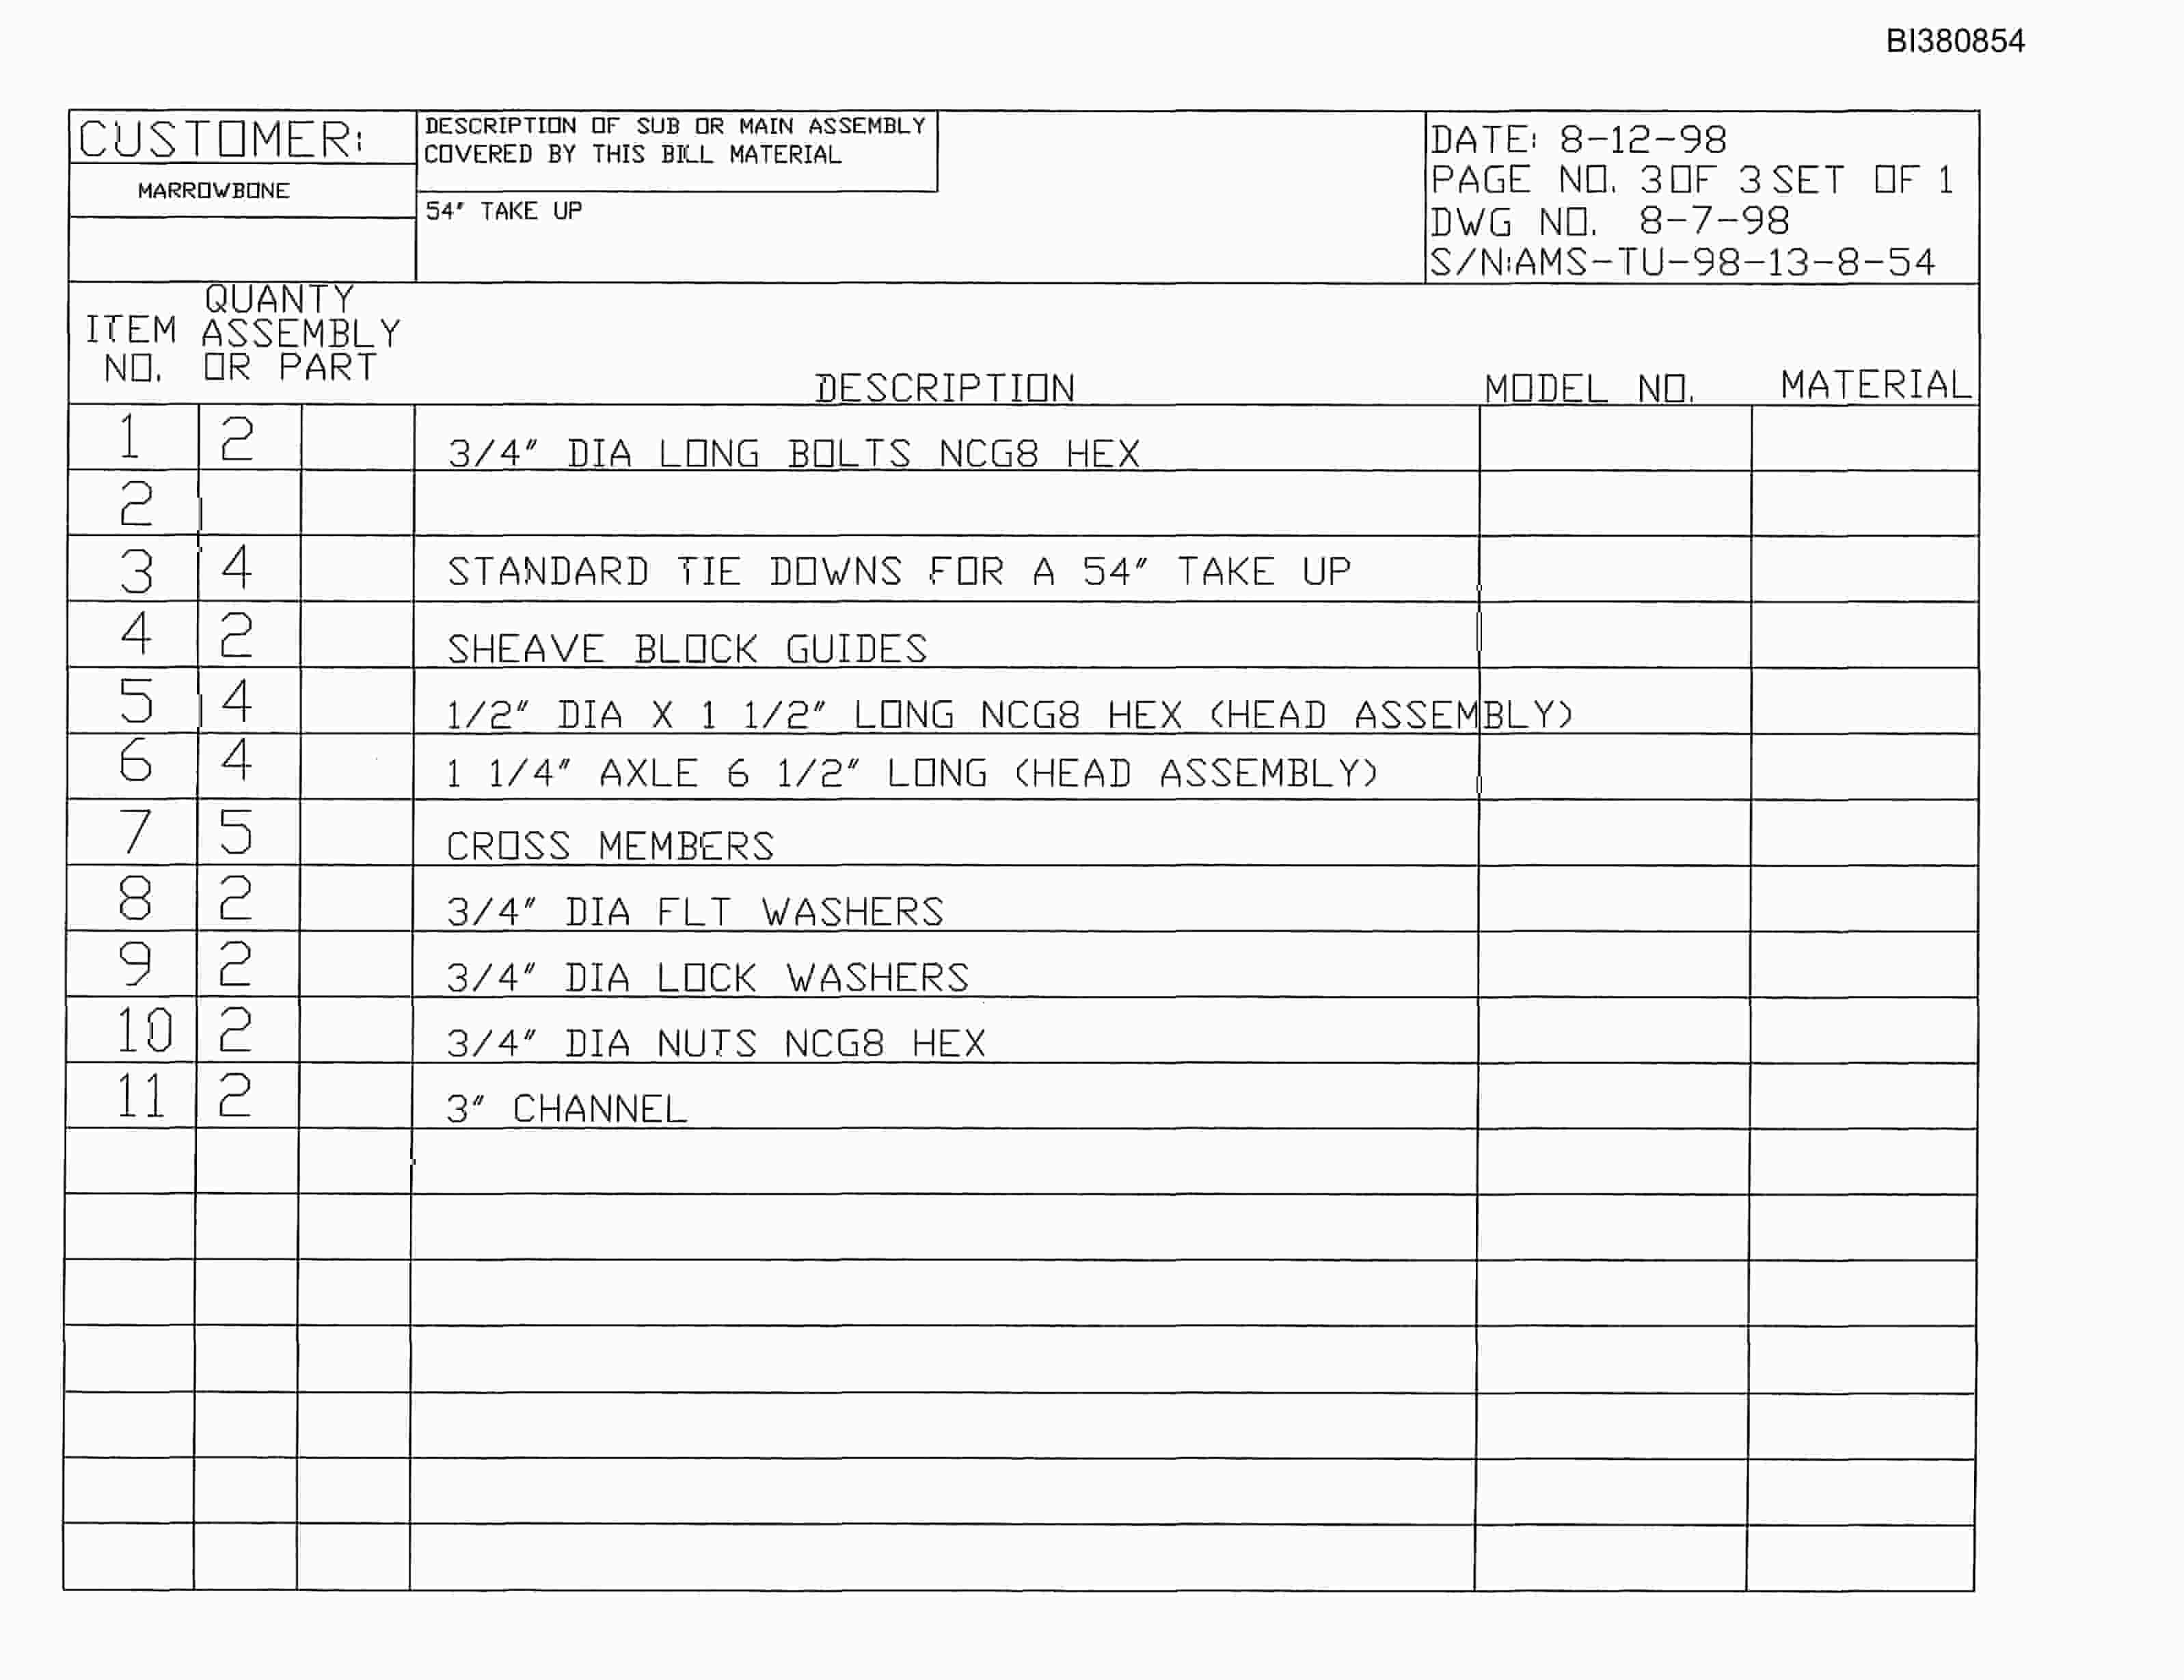 BI380854
CUSTOMER:
MARROWBONE
DESCRIPTION OF SUB OR MAIN ASSEMBLY
COVERED BY THIS BILL MATERIAL
54" TAKE UP
DATE: 8-12-98
PAGE NO. 3 OF 3 SET OF 1
DWG NO. 8-7-98
S/N:AMS-TU-98-13-8-54
ITEM NO.
QUANTY ASSEMBLY OR PART
DESCRIPTION
MODEL NO.
MATERIAL
1 2 3/4" DIA LONG BOLTS NCG8 HEX
2
3 4 STANDARD TIE DOWNS FOR A 54" TAKE UP
4 2 SHEAVE BLOCK GUIDES
5 4 1/2" DIA X 1 1/2" LONG NCG8 HEX (HEAD ASSEMBLY)
6 4 1 1/4" AXLE 6 1/2" LONG (HEAD ASSEMBLY)
7 5 CROSS MEMBERS
8 2 3/4" DIA FLT WASHERS
9 2 3/4" DIA LOCK WASHERS
10 2 3/4" DIA NUTS NCG8 HEX
11 2 3" CHANNEL